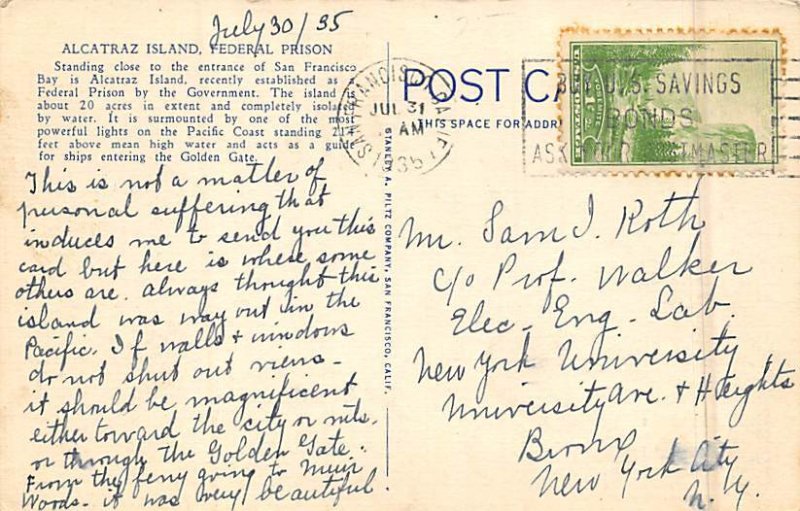 July 30/35
ALCATRAZ ISLAND, FEDERAL PRISON
Standing close to the entrance of San Francisco
Bay is Alcatraz Island, recently established as a
Federal Prison by the Government. The island is
about 20 acres in extent and completely isolated
by water. It is surmounted by one of the most
powerful lights on the Pacific Coast standing
feet above mean high water and acts as a guide
for ships entering the Golden Gate.
This is not a matter of
personal suffering that
induces me to send you this
card but here is where some
others are. Always thought this
island was way out in the
Pacific. If walls + windows
do not shut out views -
it should be magnificent
either toward the city or mts.
or through the Golden Gate.
From the ferry going to Muir
Woods - it was very beautiful.
STANLEY A. PILTZ COMPANY, SAN FRANCISCO, CALIF.
SAN FRANCISCO CALIF
JUL 31
AM
1935
POST CA
THIS SPACE FOR ADDR
BUY U.S. SAVINGS
BONDS
ASK YOUR POSTMASTER
Mr. Sam J. Roth
c/o Prof. Walker
Elec. Eng. Lab.
New York University
University Ave. + Heights
Bronx
New York City
N.Y.